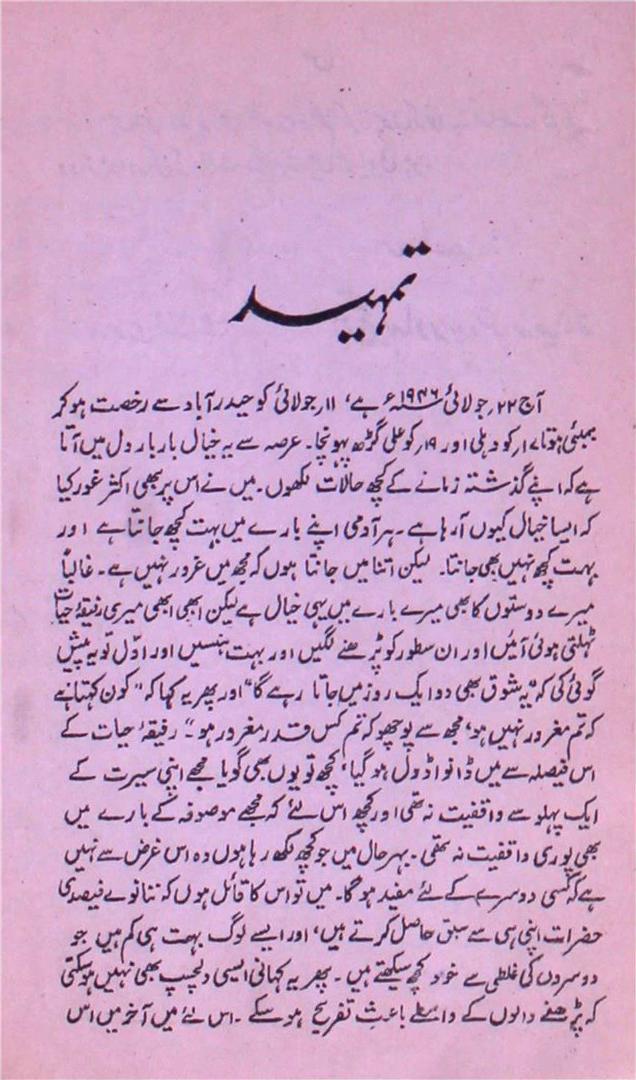 تمہید
آج ۲۲؍ جولائی ۱۹۴۶ء ہے، ۱۱؍ جولائی کو حیدرآباد سے رخصت ہو کر
بمبئی ہوتا ۱۷؍ کو دہلی اور ۱۹؍ کو علی گڑھ پہونچا۔ عرصہ سے یہ خیال بار بار دل میں آتا
ہے کہ اپنے گذشتہ زمانے کے کچھ حالات لکھوں۔ میں نے اس پر بھی اکثر غور کیا
کہ ایسا خیال کیوں آ رہا ہے۔ ہر آدمی اپنے بارے میں بہت کچھ جانتا ہے اور
بہت کچھ نہیں بھی جانتا۔ لیکن اتنا میں جانتا ہوں کہ مجھ میں غرور نہیں ہے۔ غالباً
میرے دوستوں کا بھی میرے بارے میں یہی خیال ہے لیکن ابھی ابھی میری رفیقۂ حیات
ٹہلتی ہوئی آئیں اور ان سطور کو پڑھنے لگیں اور بہت ہنسیں اور اوّل تو یہ پیش
گوئی کی کہ "یہ شوق بھی دو ایک روز میں جاتا رہے گا" اور پھر یہ کہا کہ "کون کہتا ہے
کہ تم مغرور نہیں ہو، مجھ سے پوچھو کہ تم کس قدر مغرور ہو"۔ رفیقۂ حیات کے
اس فیصلہ سے میں ڈانواڈول ہو گیا، کچھ تو یوں بھی گویا مجھے اپنی سیرت کے
ایک پہلو سے واقفیت نہ تھی اور کچھ اس لئے کہ مجھے موصوفہ کے بارے میں
بھی پوری واقفیت نہ تھی۔ بہر حال میں جو کچھ لکھ رہا ہوں وہ اس غرض سے نہیں
ہے کہ کسی دوسرے کے لئے مفید ہو گا۔ میں تو اس کا قائل ہوں کہ ننانوے فیصدی
حضرات اپنی ہی سے سبق حاصل کرتے ہیں، اور ایسے لوگ بہت ہی کم ہیں جو
دوسروں کی غلطی سے خود کچھ سیکھتے ہیں۔ پھر یہ کہانی ایسی دلچسپ بھی نہیں ہو سکتی
کہ پڑھنے والوں کے واسطے باعث تفریح ہو سکے۔ اس لئے میں آخر میں اس